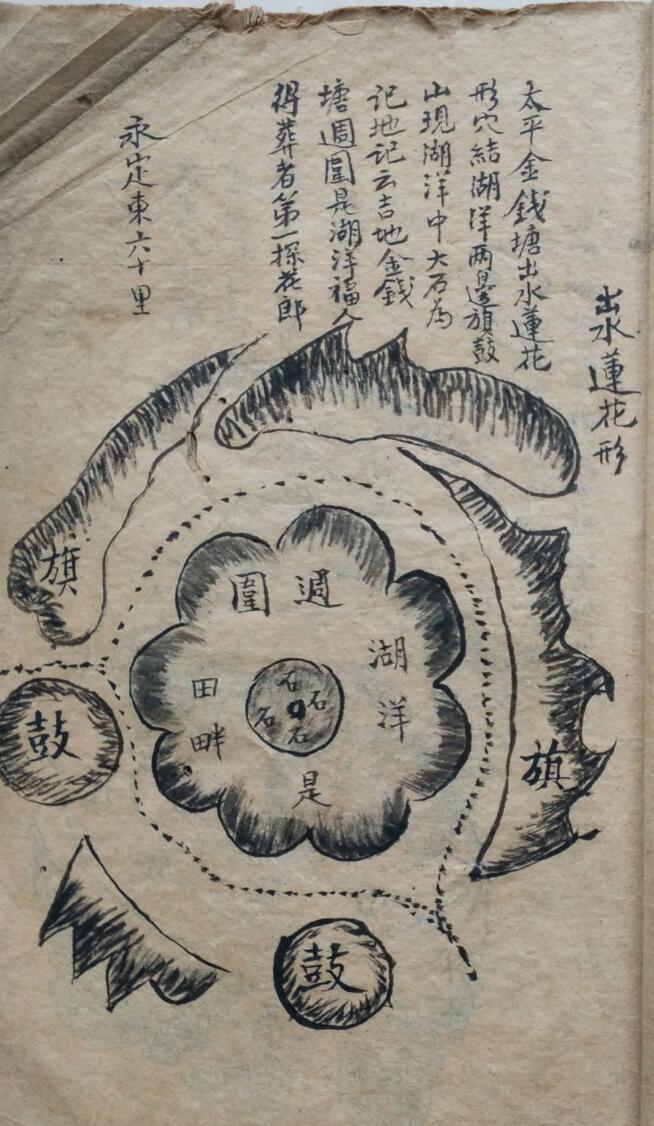 出水蓮花形
太平金錢塘出水蓮花
形穴結湖洋两邊旗鼓
山現湖洋中大石為
記地記云吉地金錢
塘週圍是湖洋福人
得葬者第一探花郎
永定東六十里
旗
鼓
週圍
湖洋
田畔
是
石
石
石
石
旗
鼓